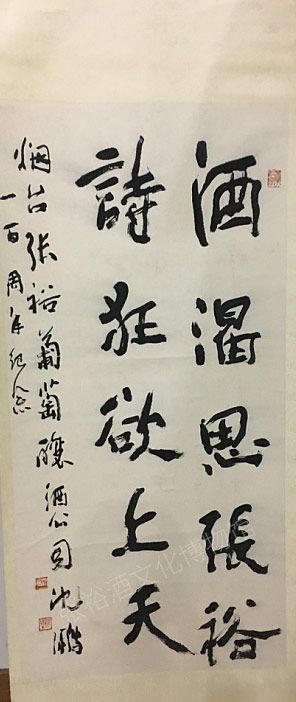 酒渴思張裕
詩狂欲上天
烟台张裕葡萄釀酒公司
一百周年纪念
沈鵬
裕酒文化博物馆